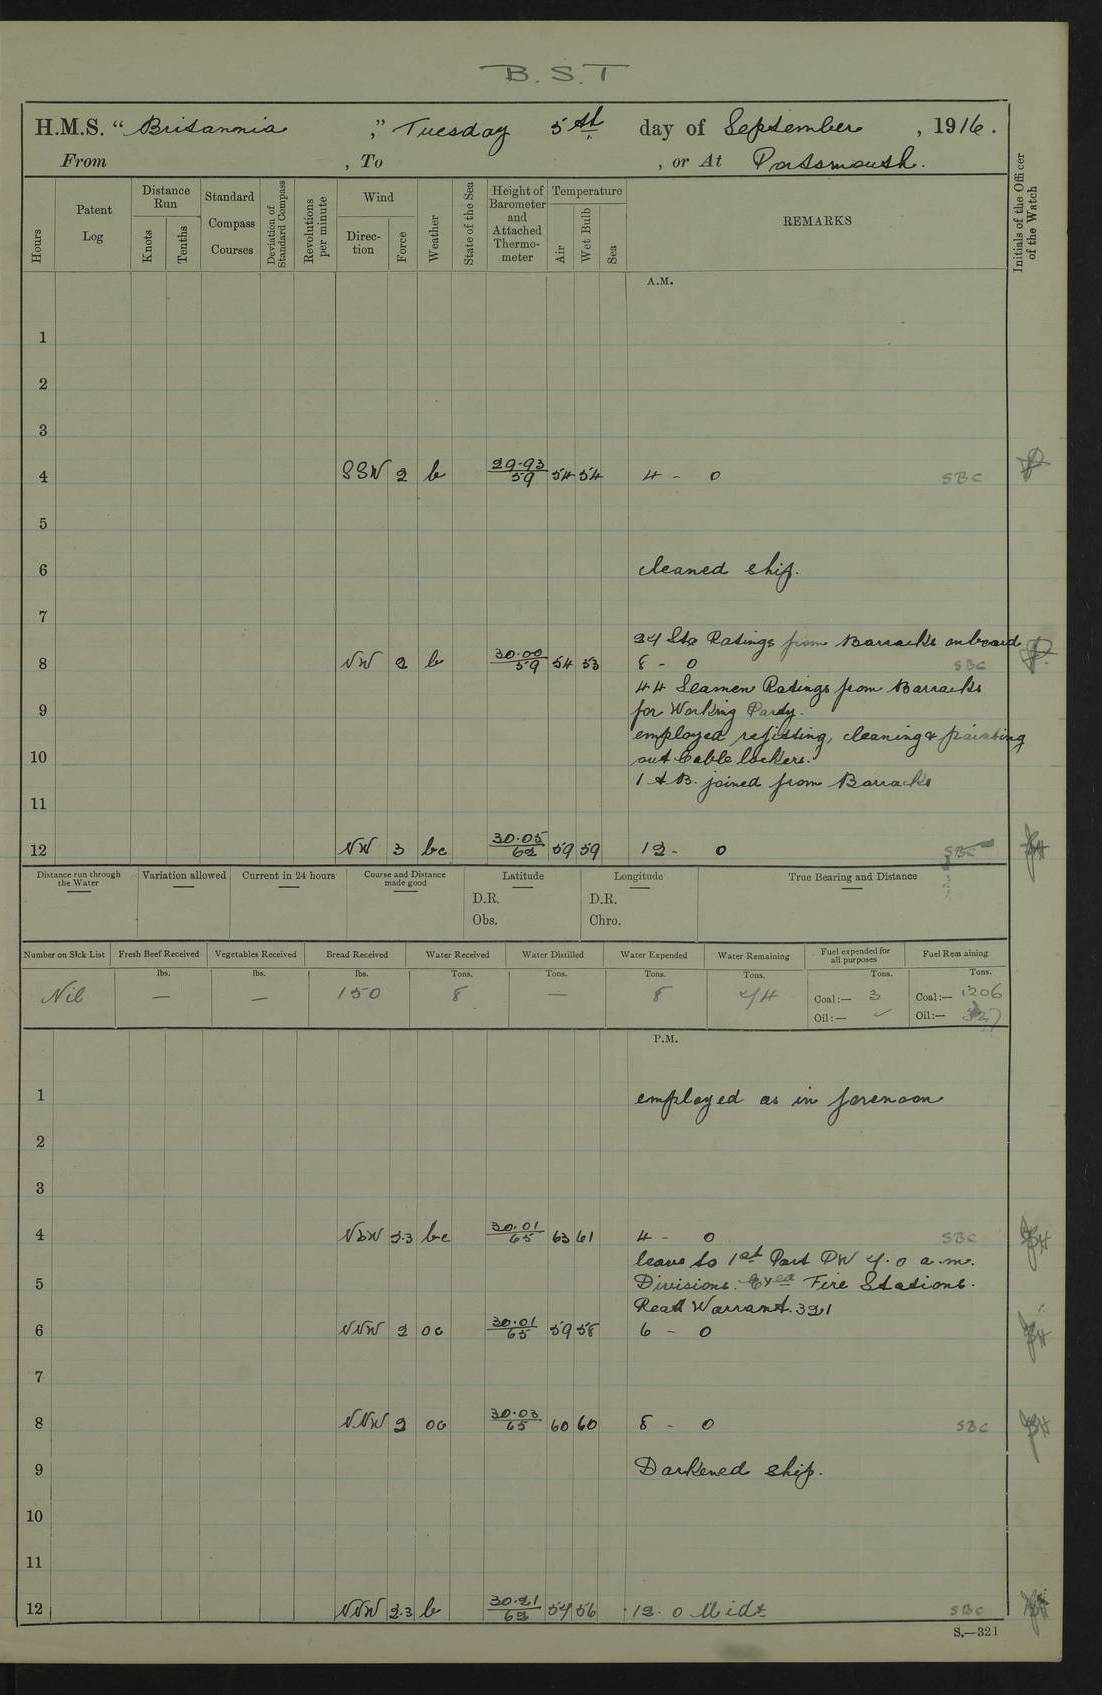 B.S.T
H.M.S. “Britannia ,” Tuesday 5th day of September , 1916.
From , To , or At Portsmouth.
Hours
Patent Log
Distance Run
Knots
Tenths
Standard Compass Courses
Deviation of Standard Compass
Revolutions per minute
Wind
Direction
Force
Weather
State of the Sea
Height of Barometer and Attached Thermometer
Temperature
Air
Wet Bulb
Sea
REMARKS
Initials of the Officer of the Watch
A.M.
1
2
3
4 SSW 2 b 29.93 59 54 54 4 - 0 SBC
5
6 cleaned ship.
7
24 Sto Ratings from Barracks onboard
8 NW 2 b 30.00 59 54 53 8 - 0 SBC
44 Seamen Ratings from Barracks
9 for Working Party.
employed refitting, cleaning & painting
10 out Cable lockers.
1 A.B. joined from Barracks
11
12 NW 3 bc 30.05 62 59 59 12 - 0 SBC
Distance run through the Water
Variation allowed
Current in 24 hours
Course and Distance made good
Latitude
D.R.
Obs.
Longitude
D.R.
Chro.
True Bearing and Distance
Number on Sick List Fresh Beef Received Vegetables Received Bread Received Water Received Water Distilled Water Expended Water Remaining Fuel expended for all purposes Fuel Remaining
lbs. lbs. lbs. Tons. Tons. Tons. Tons. Tons. Tons.
Nil — — 150 8 — 8 Coal:— 3 Coal:— 1206
Oil:— ✓ Oil:—
P.M.
1 employed as in forenoon
2
3
4 NbW 2.3 bc 30.01 65 63 61 4 - 0 SBC
leave to 1st Part PW 7.0 a.m.
5 Divisions. Exed Fire Stations.
Read Warrant. 321
6 NNW 2 oc 30.01 65 59 58 6 - 0
7
8 NNW 2 oc 30.03 65 60 60 8 - 0 SBC
9 Darkened ship.
10
11
12 NNW 2.3 b 30.21 62 57 56 12.0 Midt SBC
S.—321